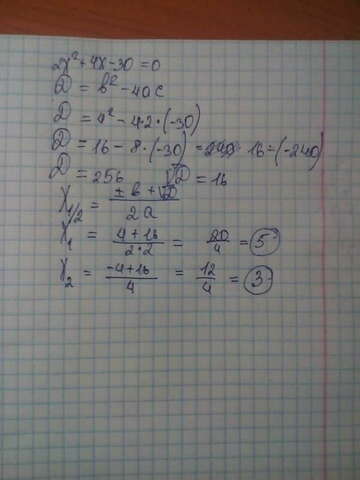 2x² + 4x - 30 = 0
D = b² - 4ac
D = 4² - 4·2·(-30)
D = 16 - 8·(-30) = 16 - (-240)
D = 256 √D = 16
x1/2 = ± b + √D / 2a
x1 = 4 + 16 / 2·2 = 20/4 = 5
x2 = -4 + 16 / 4 = 12/4 = 3